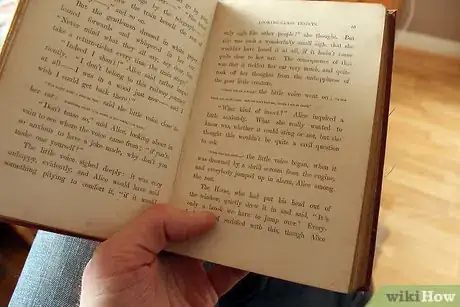 But the gentleman dressed in white paper
leaned forwards and whispered in her ear,
"Never mind what they all say, my dear, but
take a return-ticket every time the train stops."
"Indeed I shan't!" Alice said rather impa-
"I don't belong to this railway journey
at all—I was in a wood just now—and I
wish I could get back there!"
said the little voice close to
her ear
"Don't tease so," said Alice, looking about in
vain to see where the voice came from. "If you're
so anxious to have a joke made, why don't you
make one yourself?"
The little voice sighed deeply: it was very
unhappy, evidently, and Alice would have said
something pitying to comfort it, "if it would
LOOKING-GLASS INSECTS.
only sigh like other people!" she thought. But
this was such a wonderfully small sigh, that she
wouldn't have heard it at all, if it hadn't come
quite close to her ear. The consequence of this
was that it tickled her ear very much, and quite
took off her thoughts from the unhappiness of
the poor little creature.
the little voice went on
"What kind of insect?" Alice inquired a
little anxiously. What she really wanted to
know was, whether it could sting or not, but she
thought this wouldn't be quite a civil question
to ask.
the little voice began, when it
was drowned by a shrill scream from the engine,
and everybody jumped up in alarm, Alice among
the rest.
The Horse, who had put his head out of
the window, quietly drew it in and said, "It's
only a brook we have to jump over." Every-
satisfied with this, though Alice
wikiHow